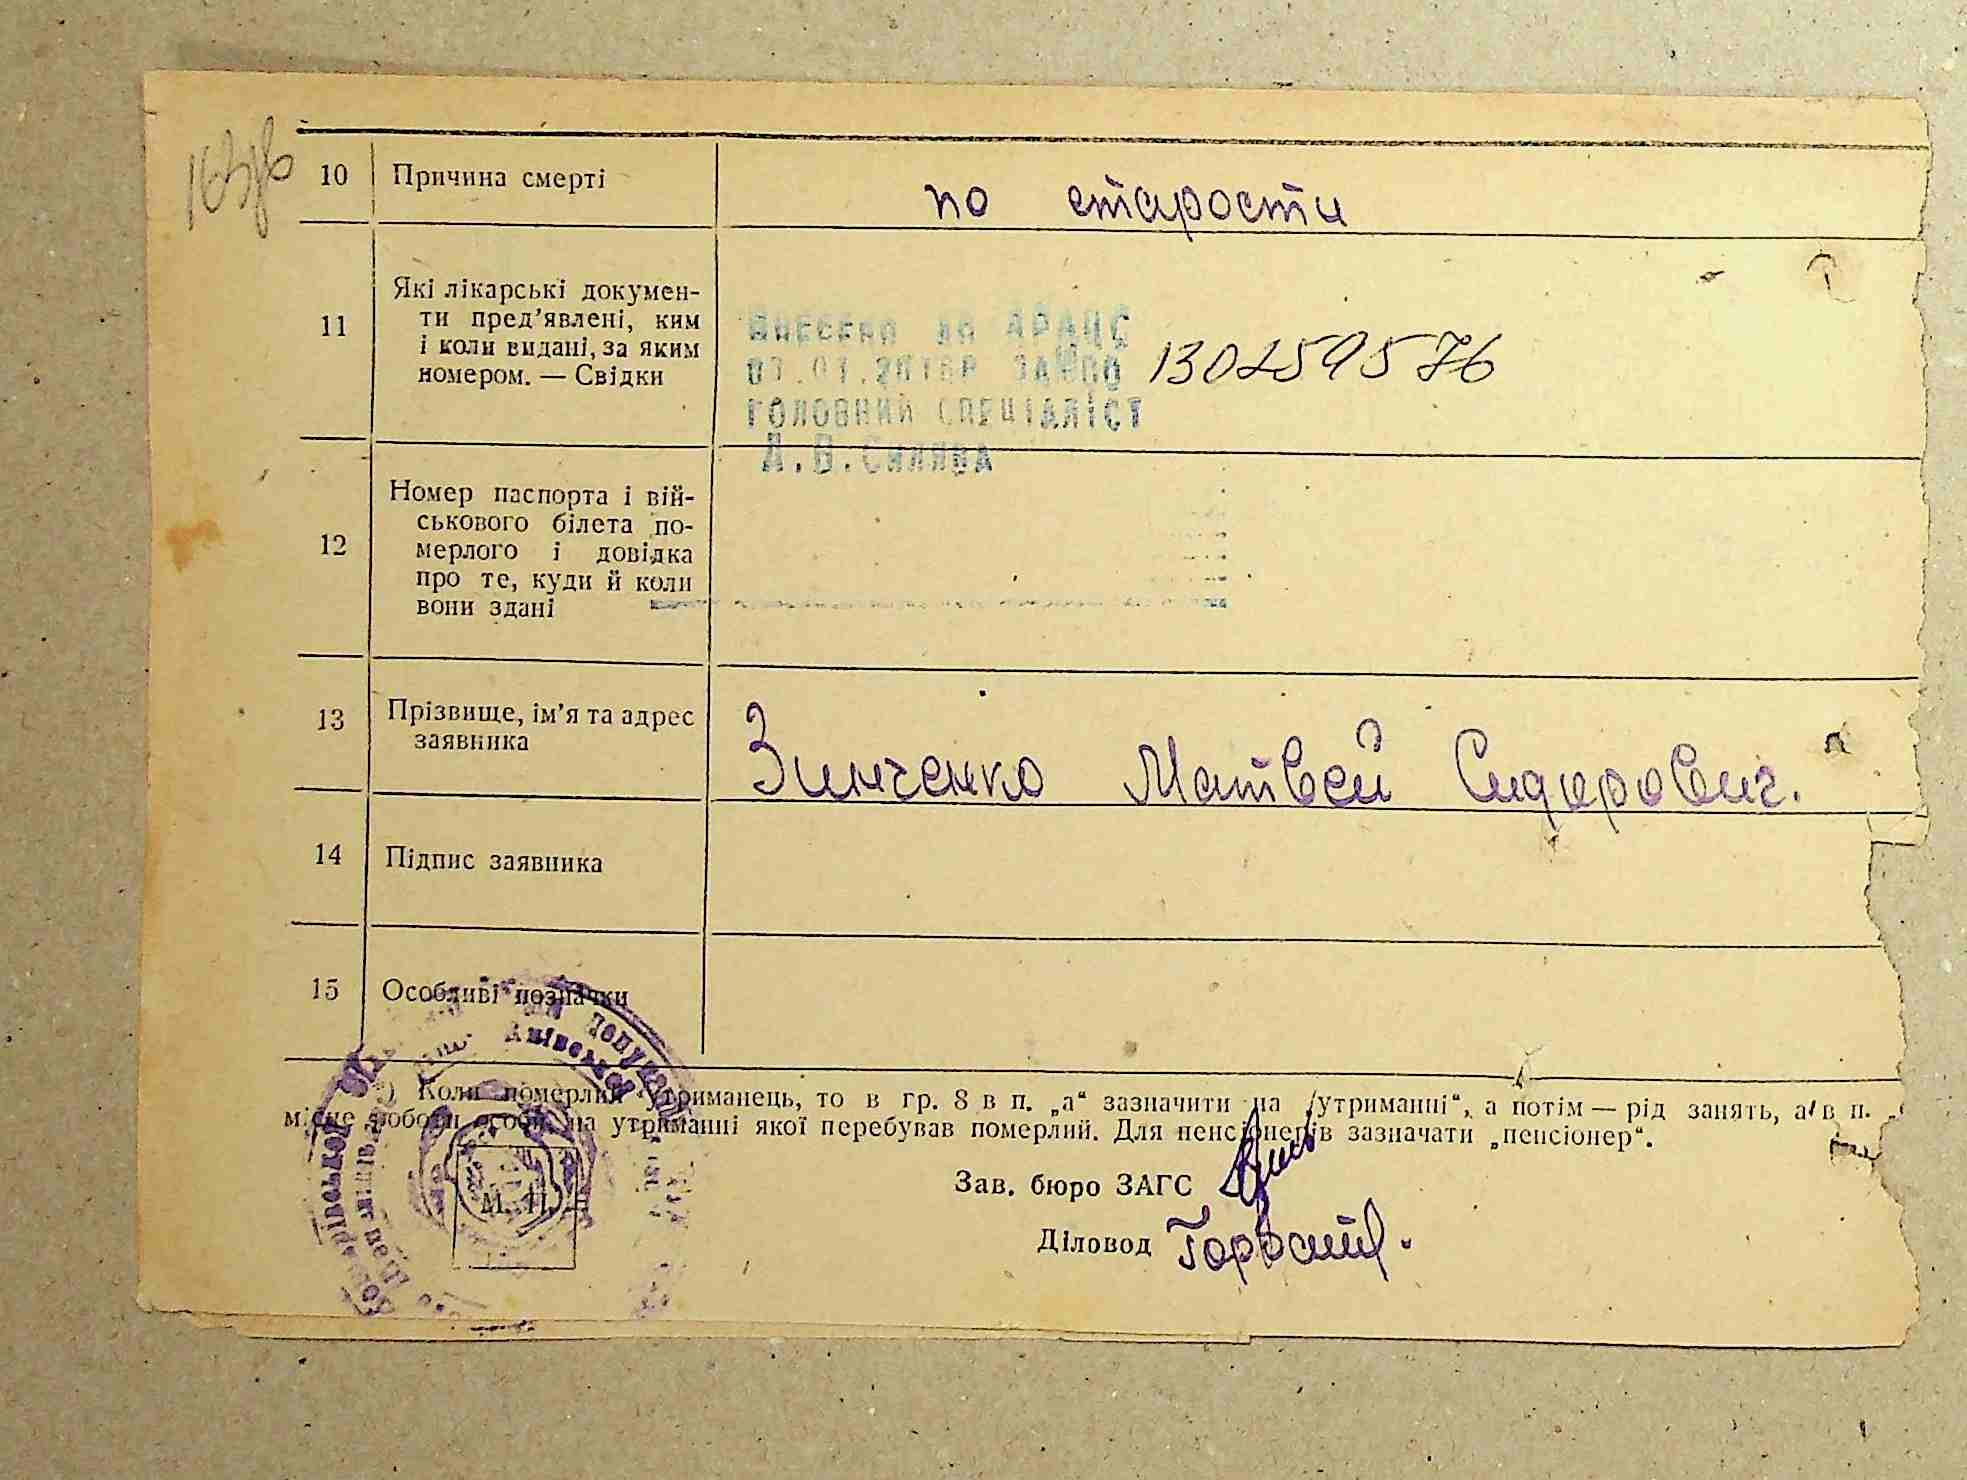 163зв
10 Причина смерті по старости
11 Які лікарські докумен-
ти пред'явлені, ким
і коли видані, за яким
номером. — Свідки
Внесено до ДРАЦС
ГОЛОВНИЙ СПЕЦІАЛІСТ
А.В.
1302595 76
12 Номер паспорта і вій-
ськового білета по-
мерлого і довідка
про те, куди й коли
вони здані
13 Прізвище, ім'я та адрес
заявника
Зинченко Матвей Сидорович.
14 Підпис заявника
15 Особливі позначки
*) Коли померлий утриманець, то в гр. 8 в п. „а“ зазначити „на утриманні“, а потім — рід занять, а в п.
місце роботи особи, на утриманні якої перебував померлий. Для пенсіонерів зазначати „пенсіонер“.
Зав. бюро ЗАГС
М. П.
Діловод